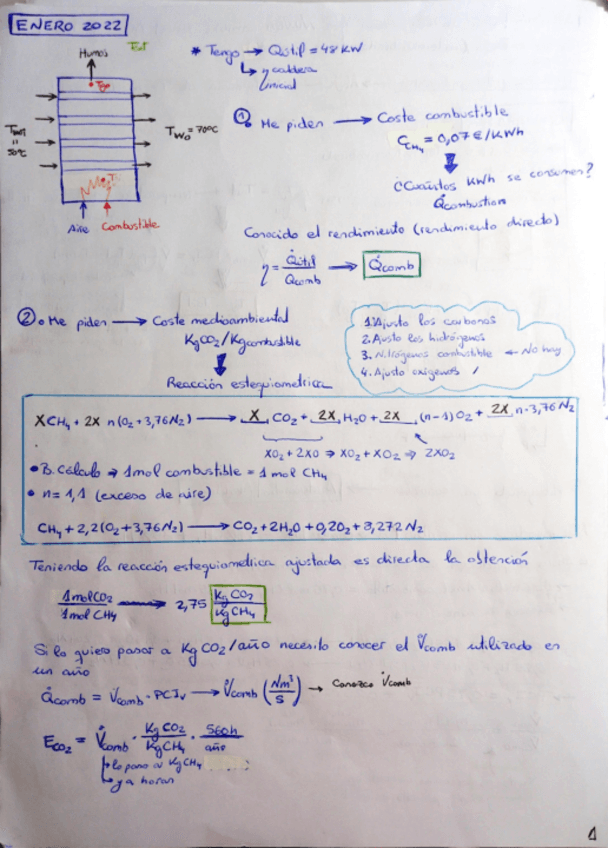 ENERO 2022
Test
Humos
* Tengo → Q̇útil = 48 KW
↳ η caldera
nominal
T
= 50ºC
T_wo = 70ºC
Aire Combustible
① Me piden → Coste combustible
C_CH4 = 0,07 €/KWh
¿Cuántos KWh se consumen?
Q̇combustion
Conocido el rendimiento (rendimiento directo)
η = Q̇útil / Q̇comb → Q̇comb
② Me piden → Coste medioambiental
KgCO2/Kgcombustible
Reacción estequiometrica
1. Ajusto los carbonos
2. Ajusto los hidrógenos
3. Nitrógenos combustible ← No hay
4. Ajusto oxígenos
XCH4 + 2X n(O2+3,76N2) → X CO2 + 2X H2O + 2X (n-1)O2 + 2X n·3,76N2
XO2 + 2XO ⇒ XO2 + XO2 ⇒ 2XO2
• B. Cálculo ⇒ 1mol combustible = 1 mol CH4
• n = 1,1 (exceso de aire)
CH4 + 2,2(O2+3,76N2) → CO2 + 2H2O + 0,2O2 + 8,272N2
Teniendo la reacción estequiometrica ajustada es directa la obtención
1molCO2 / 1mol CH4 → 2,75 KgCO2 / KgCH4
Si lo quiero pasar a KgCO2/año necesito conocer el V̇comb utilizado en
un año
Q̇comb = V̇comb · PCIv → V̇comb (Nm³/s) → Conozco V̇comb
E_CO2 = V̇comb · KgCO2/KgCH4 · 560h/año
↳ lo paso a KgCH4
↳ y a horas
1